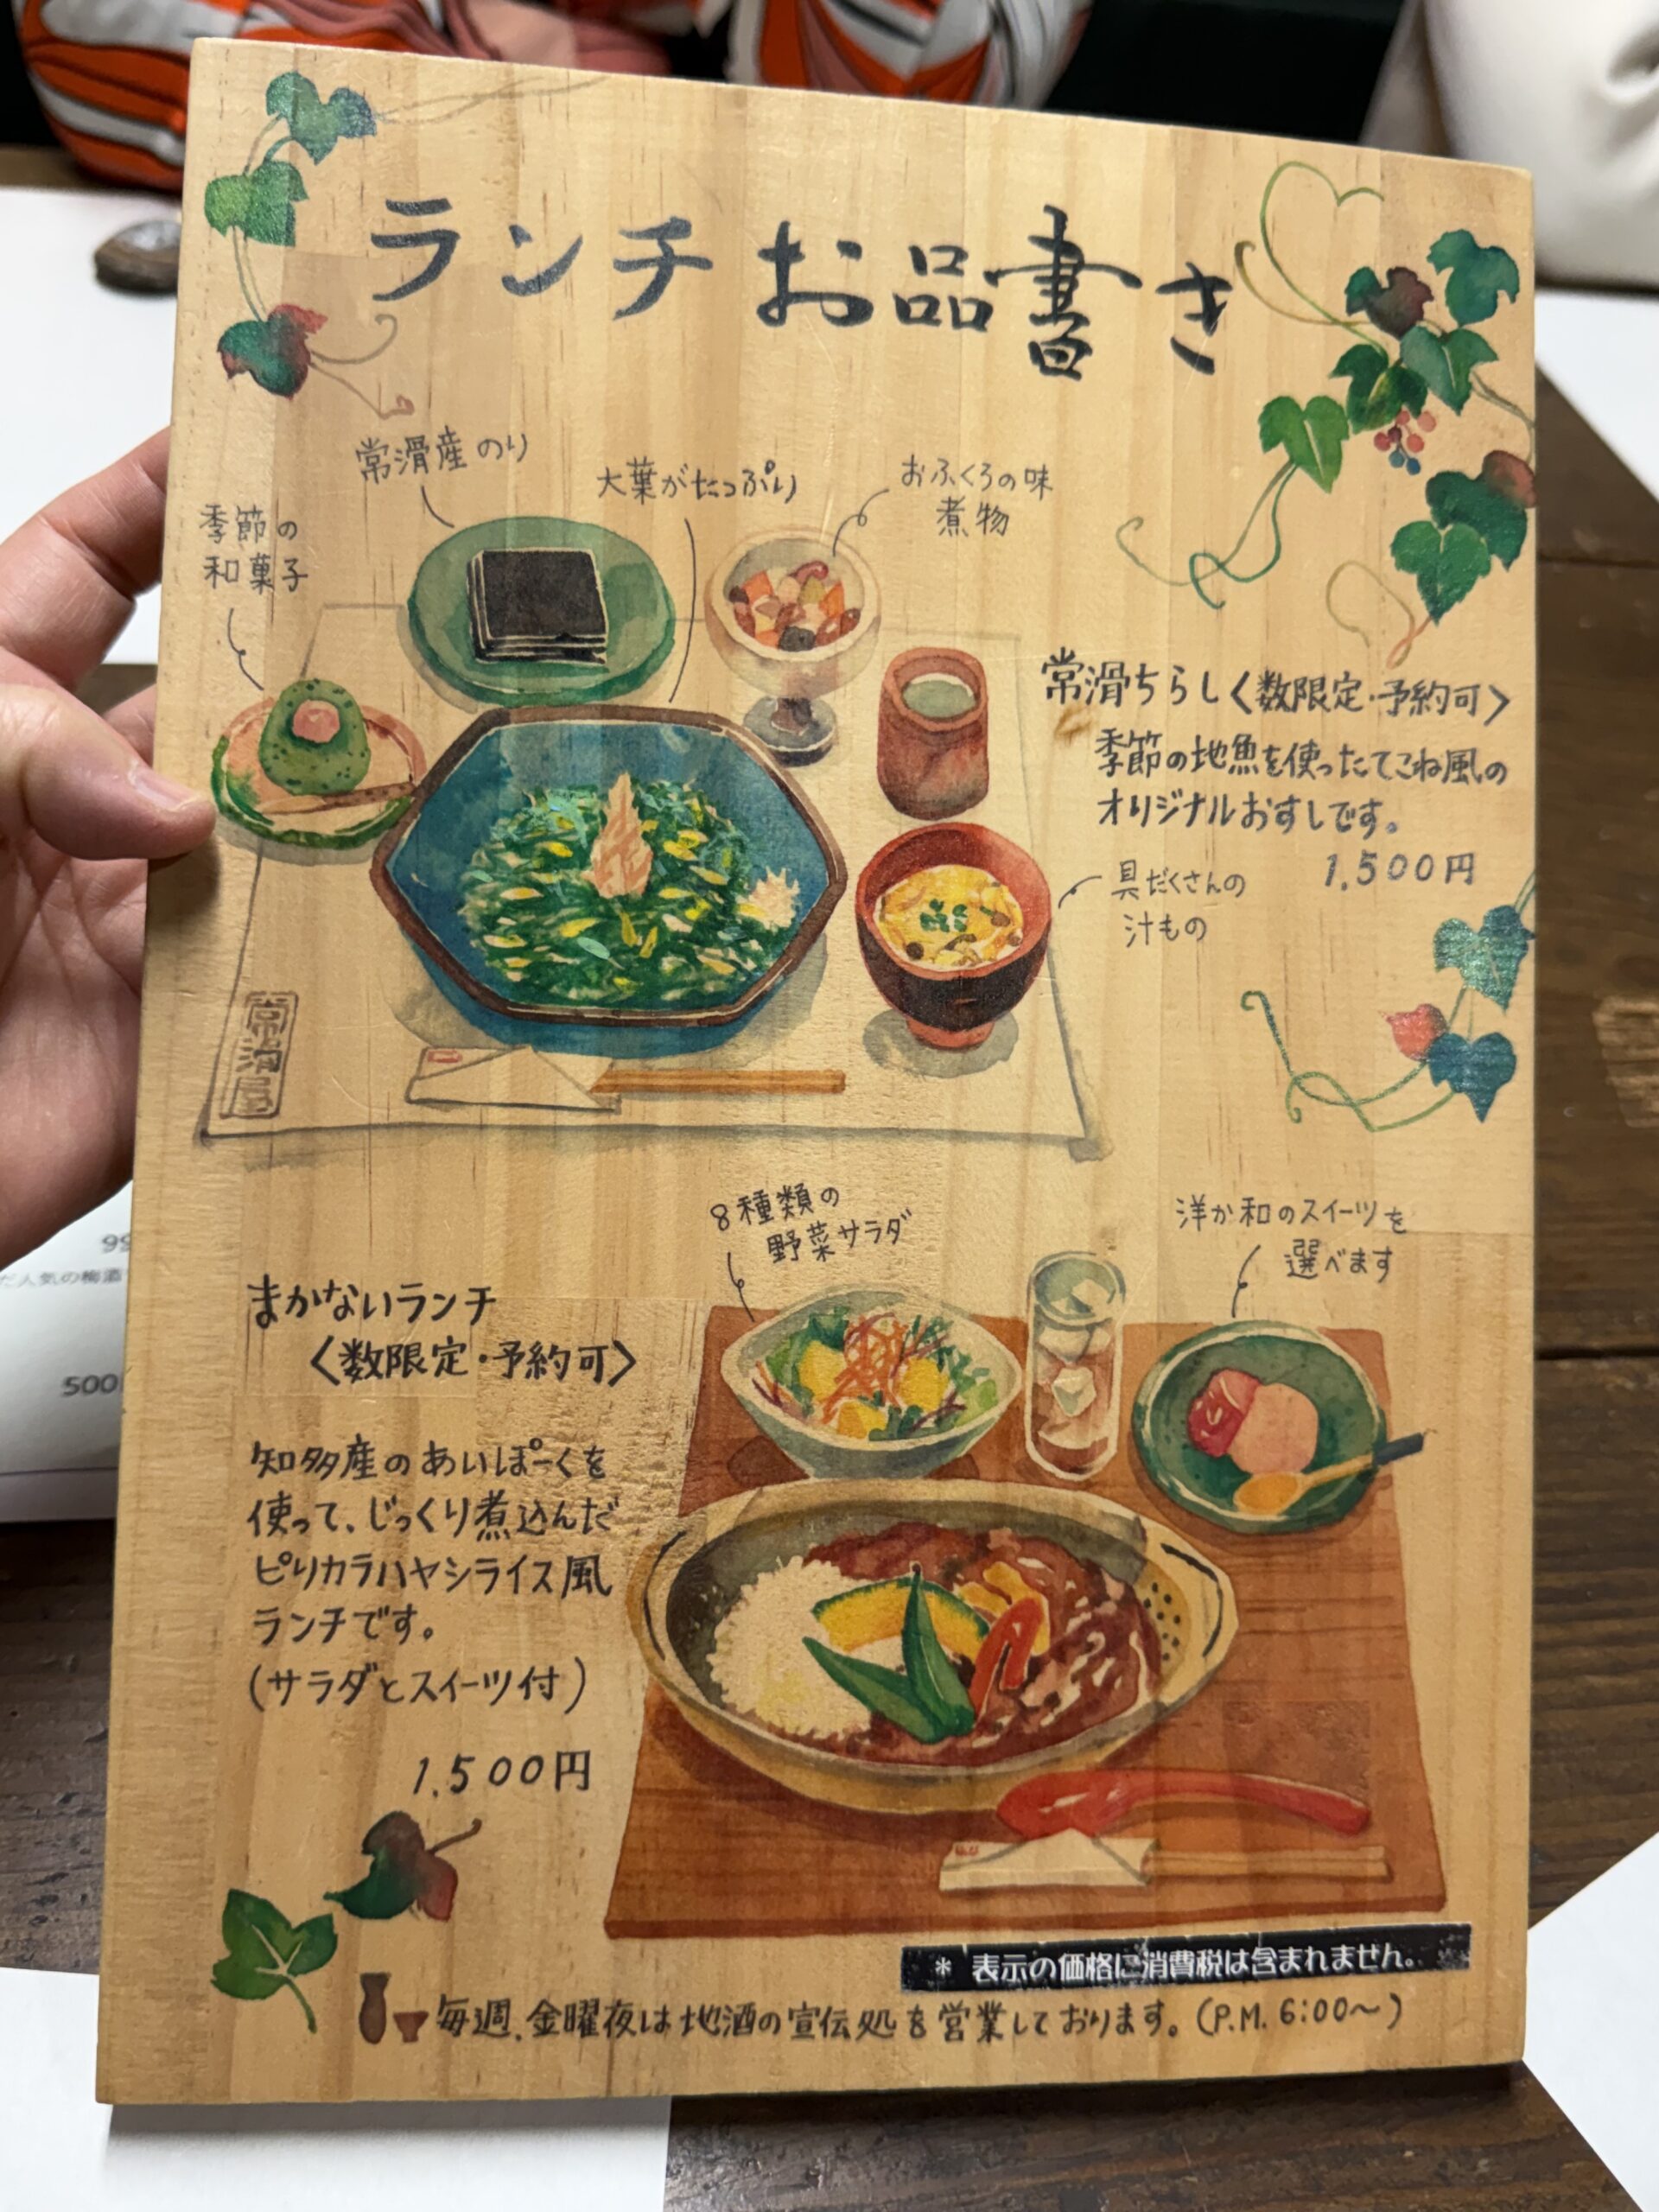 ランチお品書き
常滑産のり
大葉がたっぷり
おふくろの味
煮物
季節の
和菓子
常滑ちらし〈数限定・予約可〉
季節の地魚を使ったてこね風の
オリジナルおすしです。
1,500円
具だくさんの
汁もの
常滑屋
8種類の
野菜サラダ
洋か和のスイーツを
選べます
まかないランチ
〈数限定・予約可〉
知多産のあいぽーくを
使って、じっくり煮込んだ
ピリカラハヤシライス風
ランチです。
(サラダとスイーツ付)
1,500円
* 表示の価格に消費税は含まれません。
毎週、金曜夜は地酒の宣伝処を営業しております。(P.M. 6:00〜)
だ人気の梅酒
500